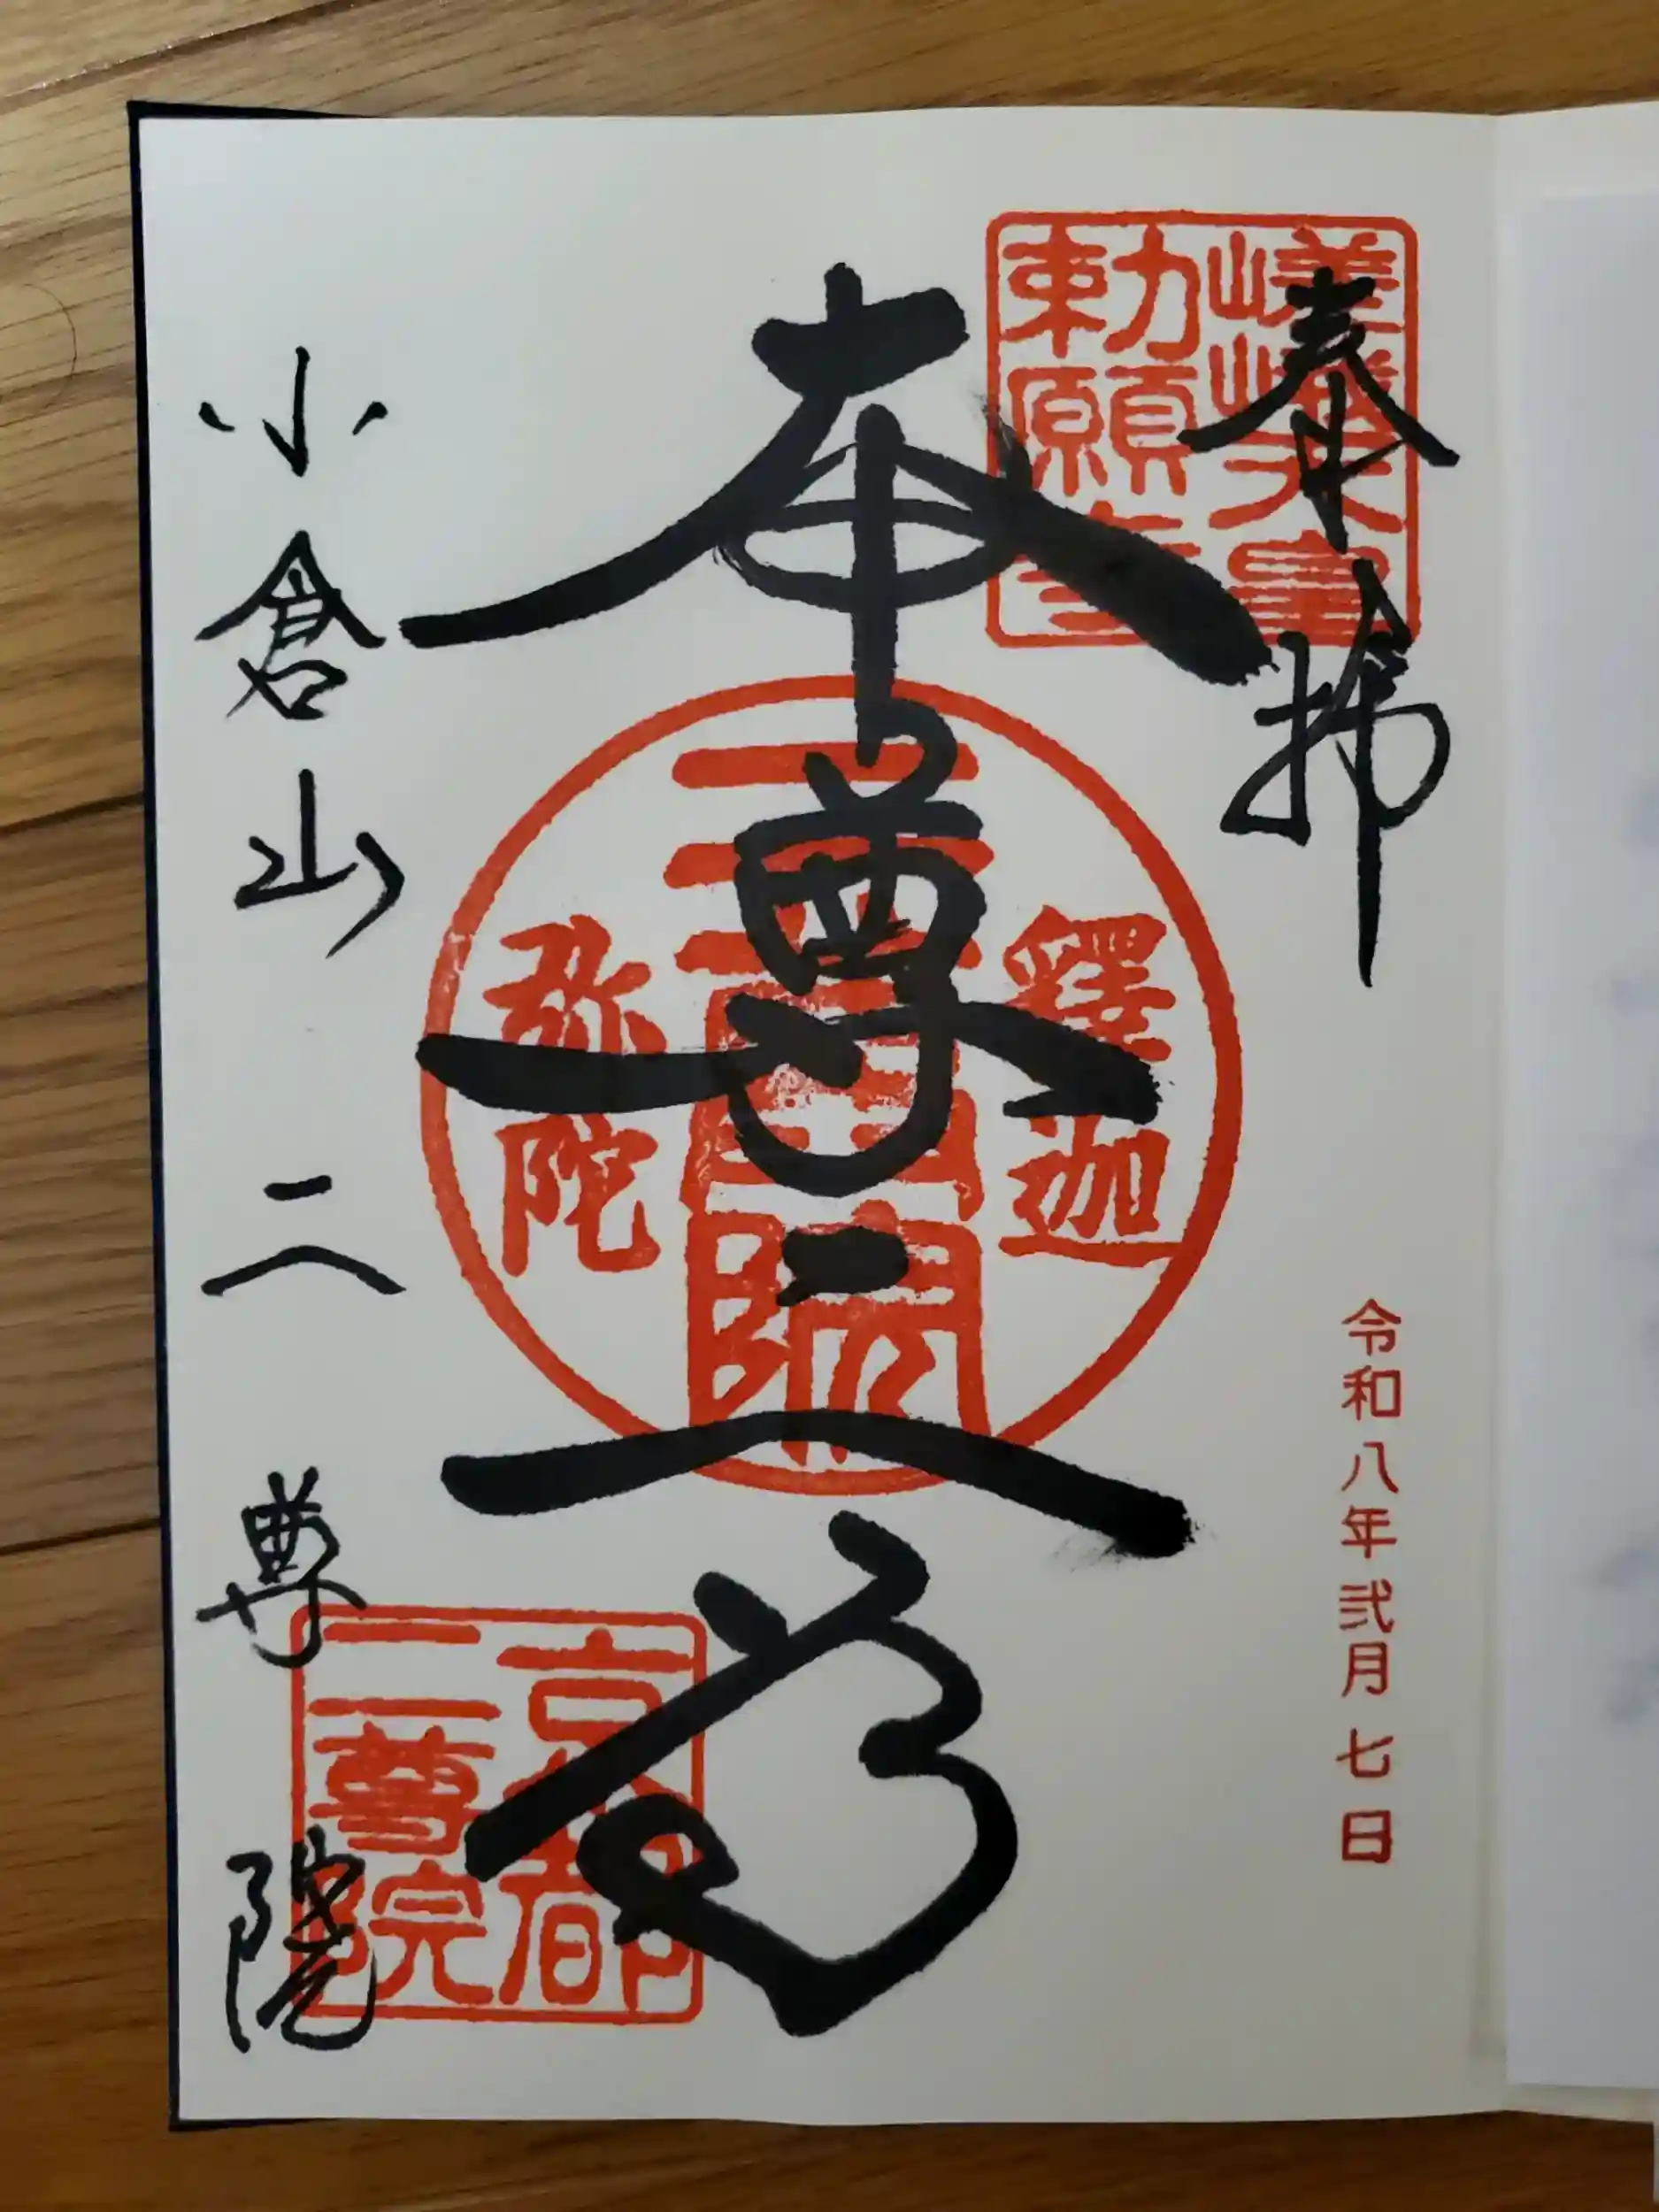 奉拝
嵯峨天皇
勅願寺
令和八年弐月七日
本尊二尊
釋迦
二尊院
弥陀
小倉山 二尊院
京都
二尊院